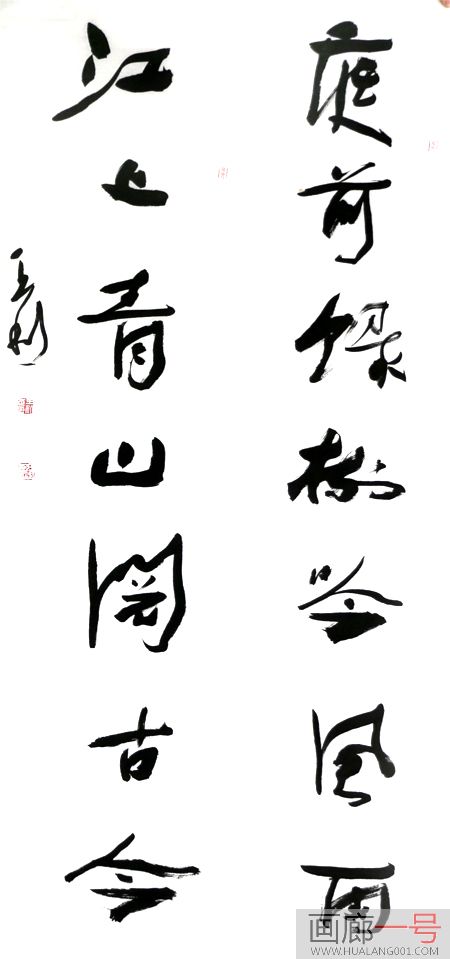 庭前綠樹吟風雨
江上青山閱古今
画廊一号
WWW.HUALANG001.COM